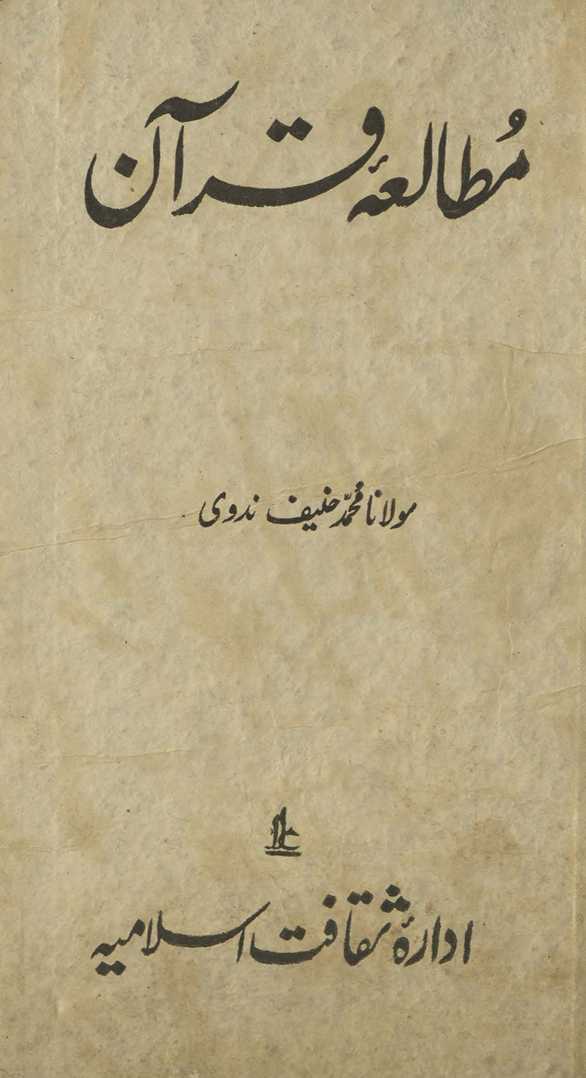 مُطالعۂ قرآن
مولانا محمّد حنیف ندوی
ادارۂ ثقافت اسلامیہ